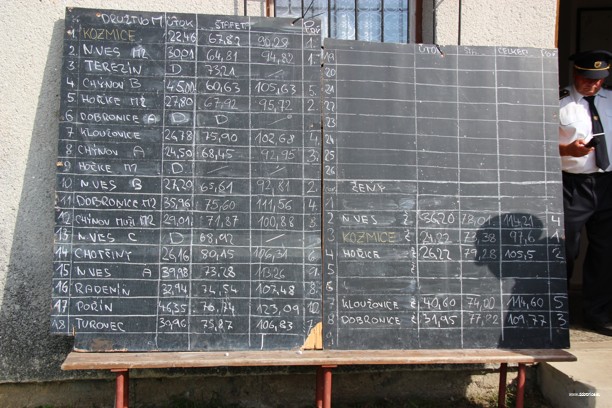 DRUŽSTVO M ÚTOK ŠTAFETY POŘ
1 KOZMICE 22,46 67,82 90,28 1.
2 N.VES MŽ 30,01 64,81 94,82 1.
3 TEREZÍN D 73,21
4 CHÝNOV B 45,00 60,63 105,63 5.
5 HOŘICE MŽ 27,80 67,92 95,72 2.
6 DOBRONICE A D D
7 KLOUŽOVICE 26,78 75,90 102,68 4.
8 CHÝNOV A 24,50 68,45 92,95 3.
9 HOŘICE M D
10 N.VES B 27,20 65,61 92,81 2.
11 DOBRONICE MŽ 35,96 75,60 111,56 4.
12 CHÝNOV MUŽI MŽ 29,01 71,87 100,88 3.
13 N.VES C D 68,92
14 CHOTĚINY 26,16 80,15 106,31 6.
15 N.VES A 39,98 73,28 113,26 9.
16 RADENÍN 32,94 74,54 107,48 8.
17 POŘÍN 46,35 76,74 123,09 10.
18 TUROVEC 30,96 75,87 106,83
ÚTOK CELKEM POŘ
19
20
21
22
23
24
25
26
ŽENY
1
2 N.VES ž 36,20 78,01 114,21 4
3 KOZMICE ž 24,22 73,38 97,6 1
4 HOŘICE ž 26,22 79,28 105,5 2
5
6
7 KLOUŽOVICE ž 40,60 74,00 114,60 5
8 DOBRONICE ž 31,95 77,82 109,77 3